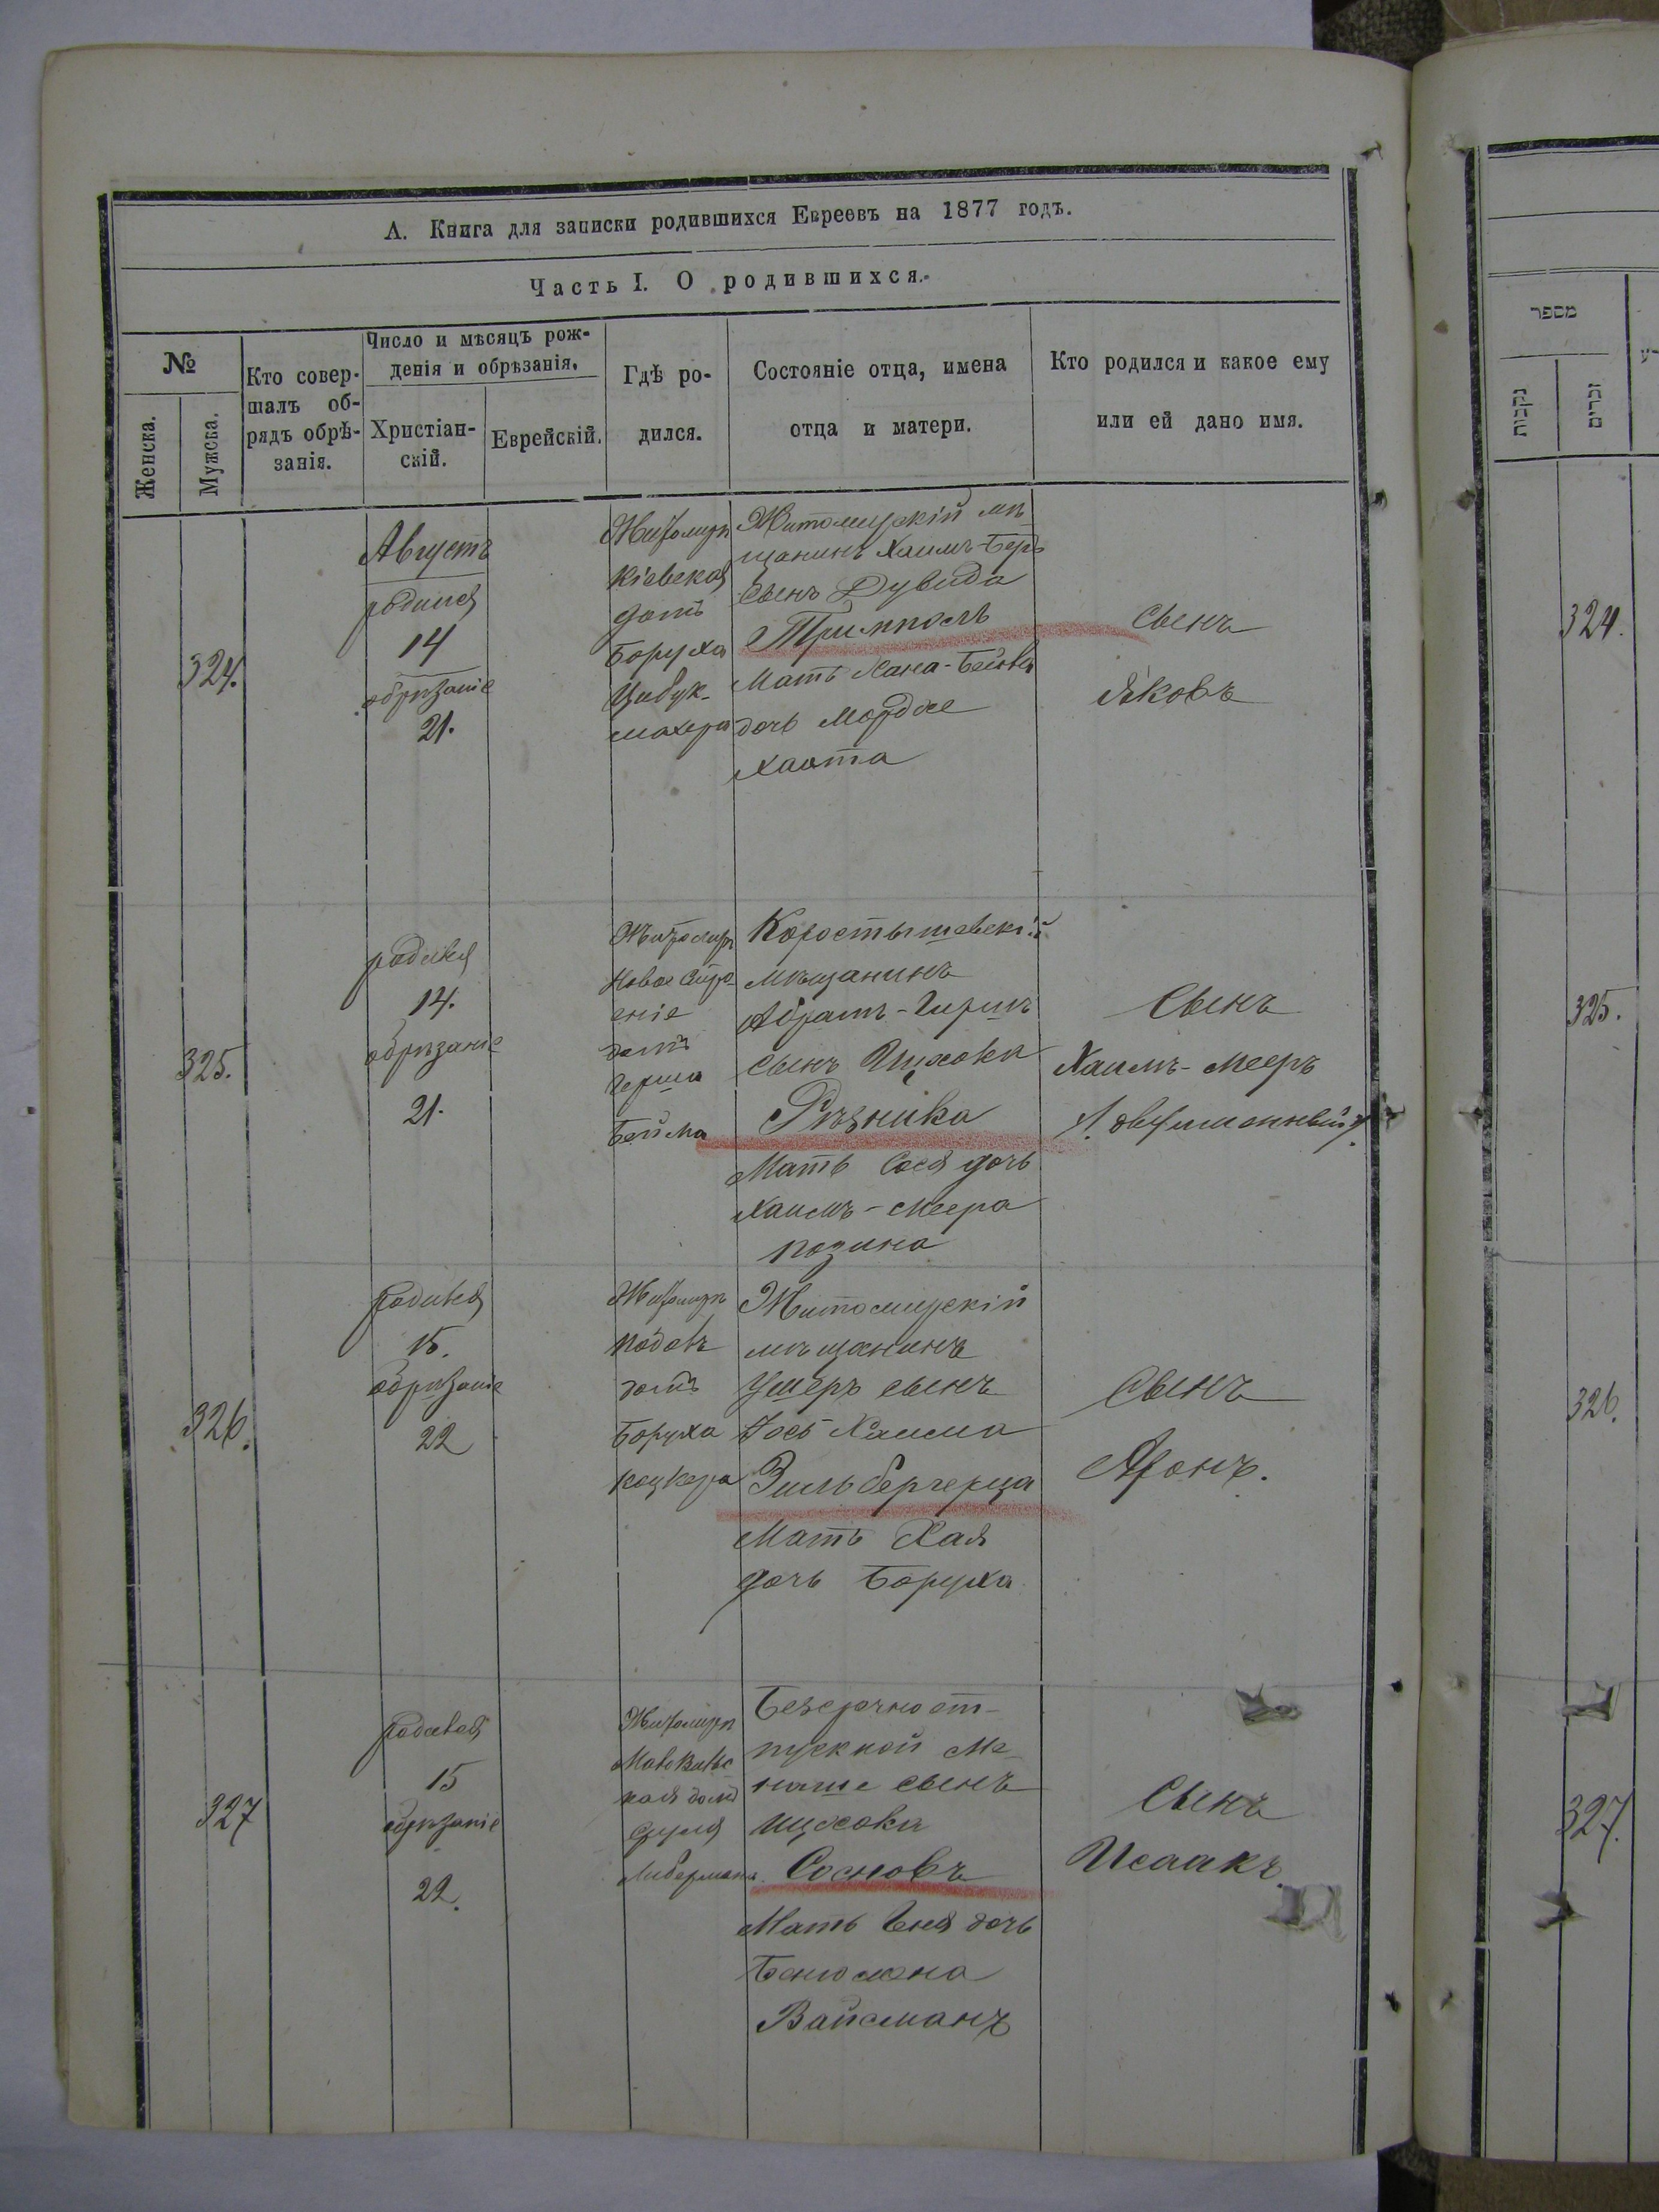 А. Книга для записки родившихся Евреевъ на 1877 годъ.
Часть I. О родившихся.
№
Женска.
Мужска.
Кто совер-
шалъ об-
рядъ обрѣ-
занія.
Число и мѣсяцъ рож-
денія и обрѣзанія.
Христіан-
скій.
Еврейскій.
Гдѣ ро-
дился.
Состояніе отца, имена
отца и матери.
Кто родился и какое ему
или ей дано имя.
324.
Августъ
родился
14
обрѣзаніе
21.
Житомиръ
Кіевская
домъ
Боруха
Цибук-
махера
Житомирскій мѣ-
щанинъ Хаимъ-Беръ
сынъ Дувида
Тримполь
Мать Хана-Бейла
дочь Мордже
Хаота
Сынъ
Яковъ
325.
родился
14.
обрѣзаніе
21.
Житомиръ
Новое Стро-
еніе
домъ
Герша
Бейма
Коростышевскій
мѣщанинъ
Абрамъ-Гершъ
сынъ Ицхока
Рѣзника
Мать Сося дочь
Хаимъ-Меера
Позина
Сынъ
Хаимъ-Мееръ
/: двуименный :/
326.
родился
15.
обрѣзаніе
22
Житомиръ
домъ
Боруха
Коцкера
Житомирскій
мѣщанинъ
Ушеръ сынъ
Іось Хаима
Зильбергерца
Мать Хая
дочь Боруха
Сынъ
Аронъ.
327
родился
15
обрѣзаніе
22.
Житомиръ
домъ
Сруля
Либермана
Безсрочноот-
пускной Ме-
наше сынъ
Ицхока
Сосновъ
Мать Еня дочь
Бенюмена
Вайсманъ
Сынъ
Исаакъ.
מספר
נקבות
זכרים
324.
325.
326.
327.